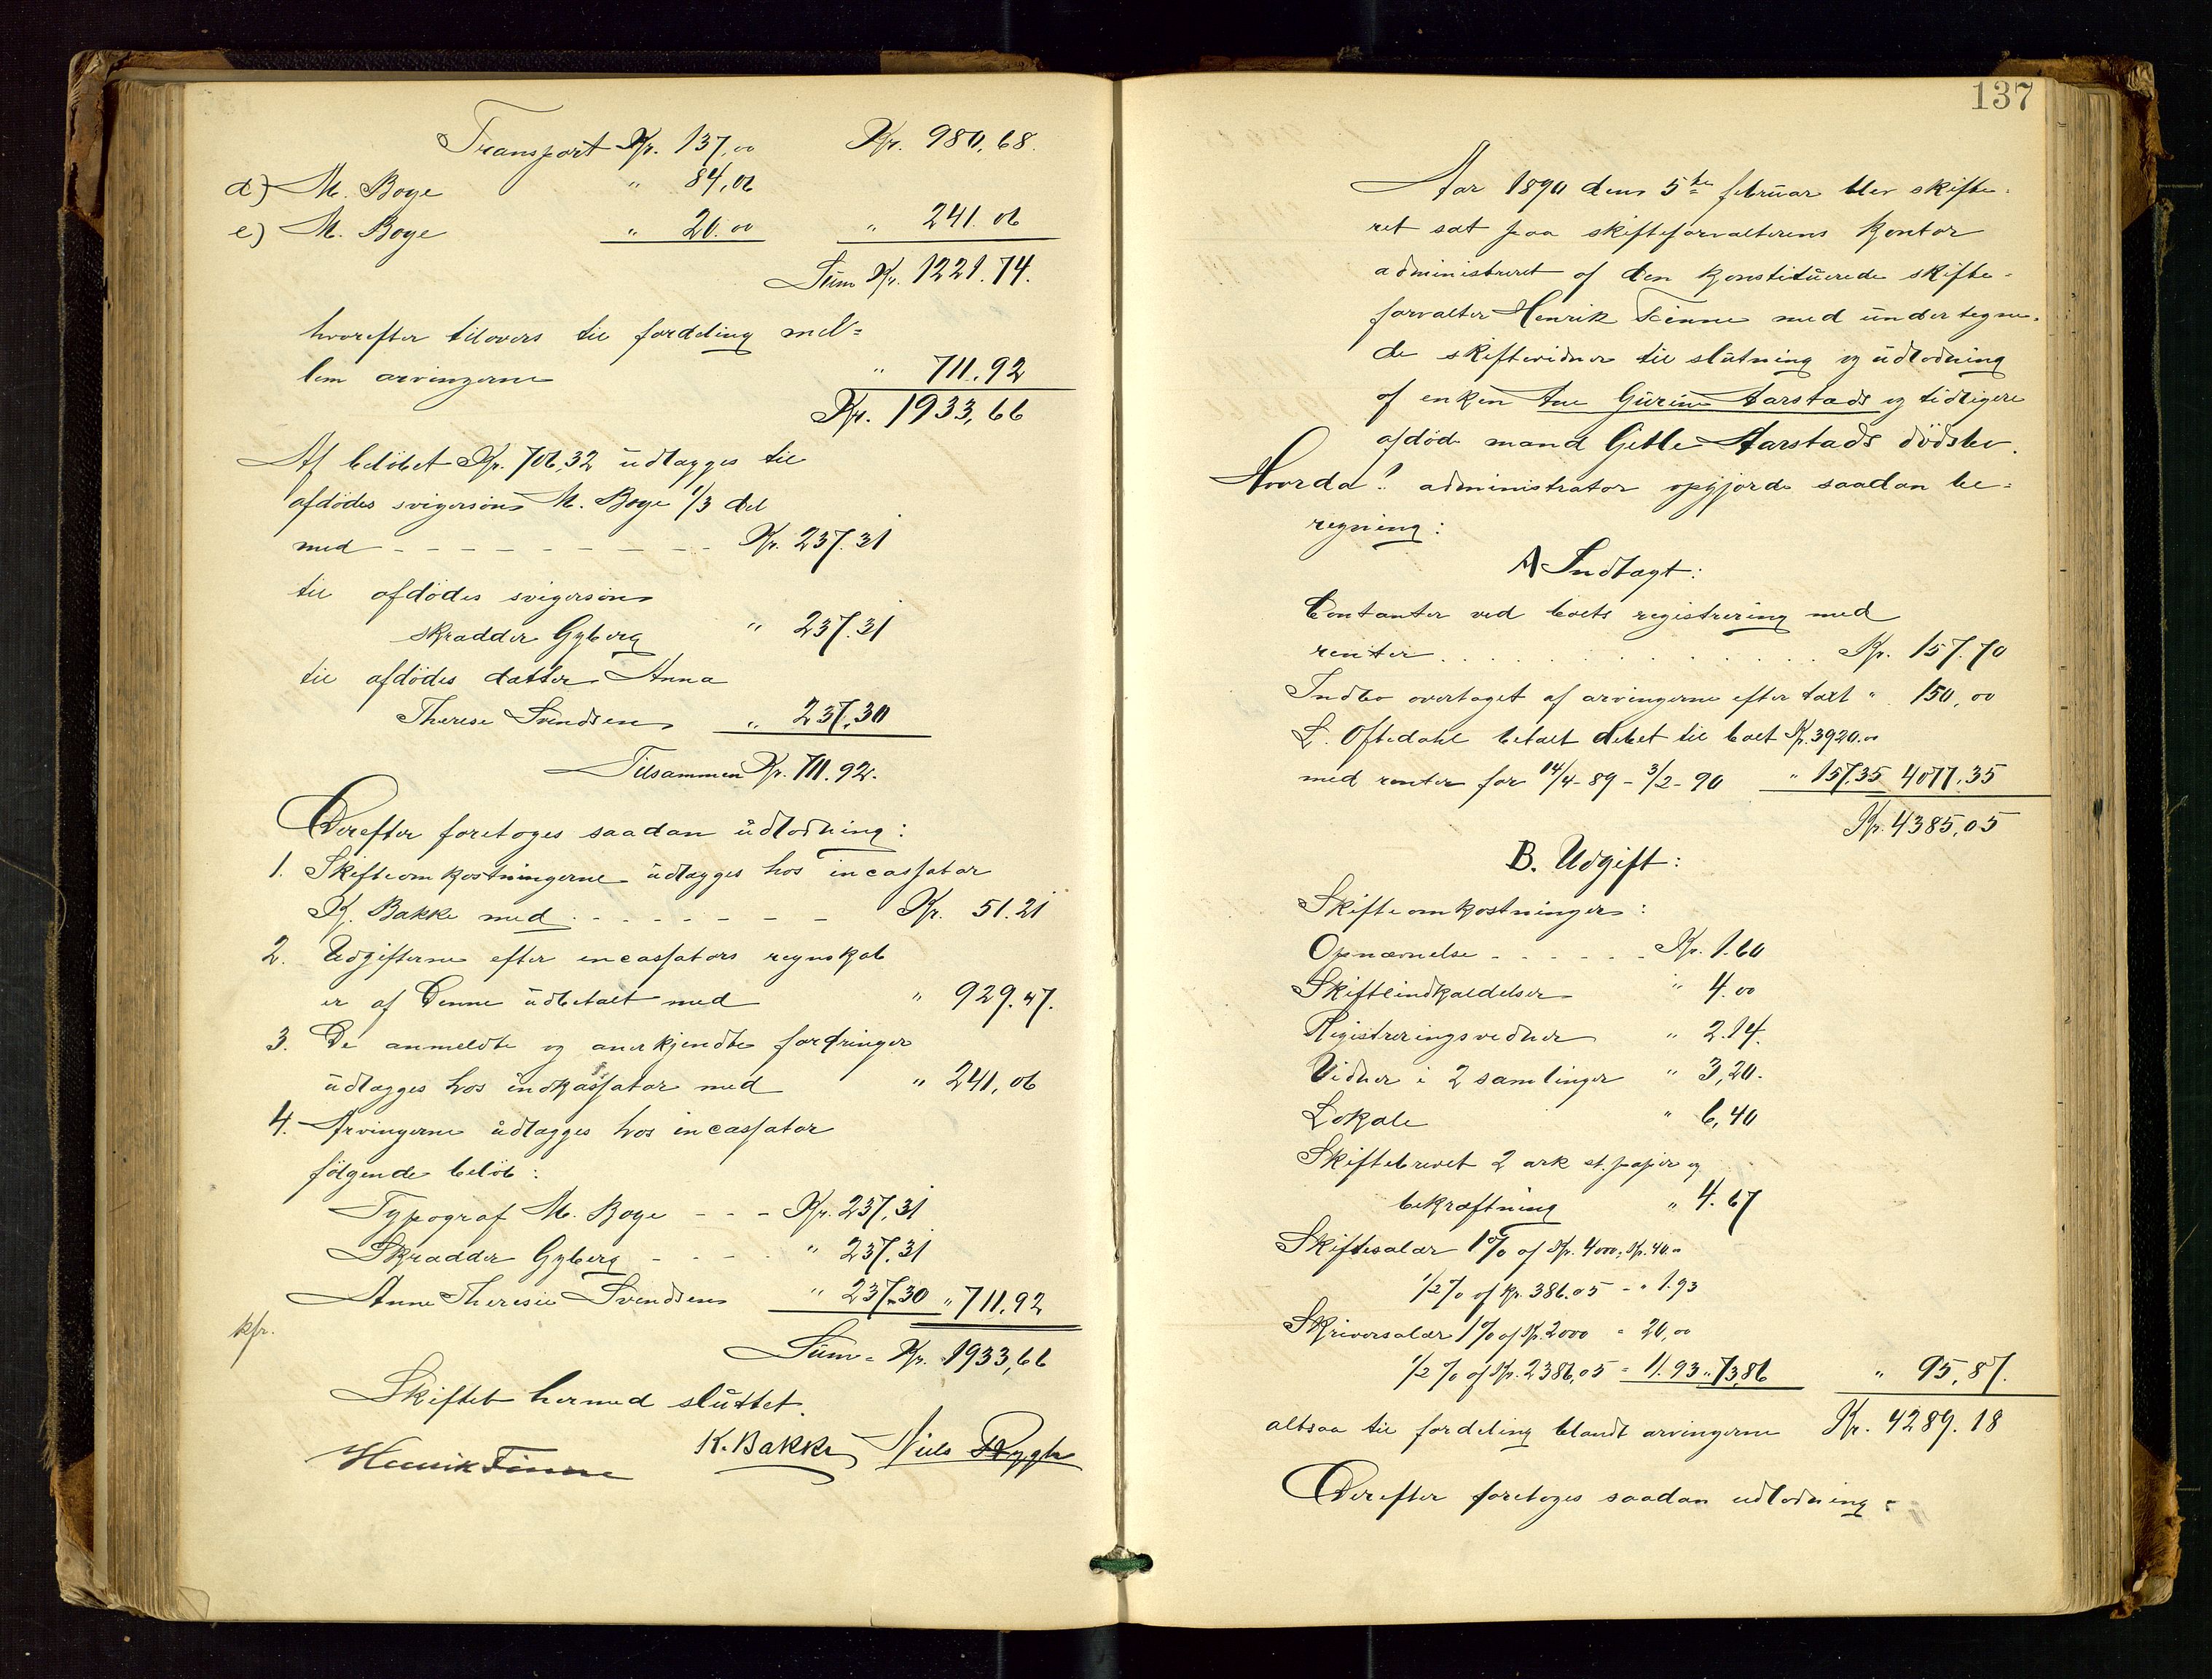 Transport Kr. 137,00 Kr. 980,68.
d) M. Boye " 84,06
e) M. Boye " 20.00 " 241.06
Sum Kr. 1221.74.
hvorefter tilovers til fordeling mel=
lem arvingerne " 711.92
Kr. 1933,66
Af beløbet Kr. 706,32 udlægges til
afdødes svigersøn M. Boye 1/3 del
med - - - - - - - - - - Kr. 237.31
til afdødes svigersøn
skrædder Gyberg " 237.31
til afdødes datter Anna
Therese Svendsen " 237.30
Tilsammen Kr. 711.92.
Derefter foretoges saadan udlodning:
1. Skifteomkostningerne udlægges hos incassator
K. Bakke med - - - - - - - Kr. 51.21
2. Udgifterne efter incassators regnskab
er af Denne udbetalt med " 929.47.
3. De anmeldte og anerkjendte fordringer
udlægges hos indkassator med " 241,06
4. Arvingerne udlægges hos incassator
følgende beløb:
Typograf M. Boye - - - Kr. 237,31
Skrædder Gyberg - - - - " 237.31
Anne Theresie Svendsen " 237.30 " 711,92
kfr.
Sum = Kr. 1933,66
Skiftet hermed sluttet.
Henrik Finne K. Bakke Niels Rygh
137
Aar 1890 den 5te februar blev skifte=
ret sat paa skifteforvalterens kontor
administreret af den konstituerede skifte=
forvalter Henrik Finne med undertegne=
de skiftevidner til slutning og udlodning
af enken Ane Gurine Aarstads og tidligere
afdøde mand Gitle Aarstads dødsbo.
Hvorda! administrator opgjorde saadan be=
regning:
A Indtægt:
Contanter ved boets registrering med
renter . . . . . . . . . . Kr. 157.70
Indbo overtaget af arvingerne efter taxt " 150,00
L. Oftedahl betalt debet til boet Kr. 3920.00
med renter for 14/4-89 - 3/2-90 " 157.35 4077.35
Kr. 4385,05
B. Udgift:
Skifteomkostninger:
Opnævnelse - - - - - - Kr. 1.60
Skifteindkaldelser " 4.00
Registreringsvidner " 2.14.
Vidner i 2 samlinger " 3,20.
Lokale " 6,40
Skiftebrevet 2 ark st. papir og
bekræftning " 4.67
Skiftesalær 1% af Kr. 4000 = Kr. 40.00
1/2% af Kr. 386.05 - " 1.93
Skriversalær 1% af Kr. 2000 = 20,00
1/2% af Kr. 2386,05 = 11.93 " 73,86 " 95,87.
altsaa til fordeling blandt arvingerne Kr. 4289.18
Derefter foretoges saadan udlodning: